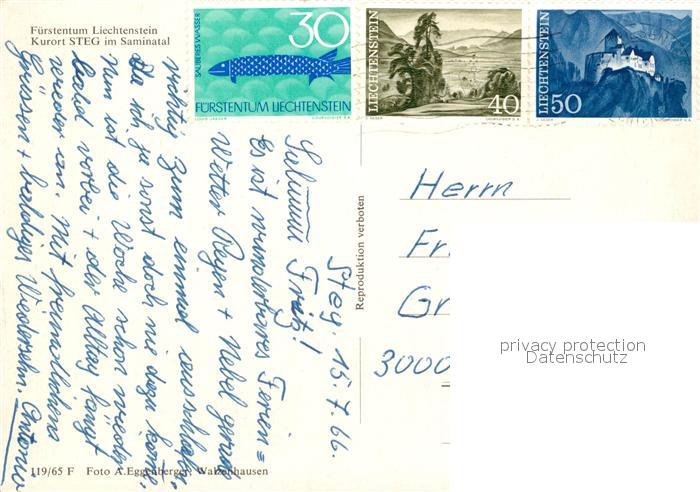 Fürstentum Liechtenstein
Kurort STEG im Saminatal
SAUBERES WASSER
30
FÜRSTENTUM LIECHTENSTEIN
LIECHTENSTEIN
40
LIECHTENSTEIN
50
Steg, 15.7.66
Fritz!
Es ist wunderbares Ferien=
Wetter Regen + Nebel gerade
richtig zum einmal ausschlafen,
da ich ja sonst doch nie dazu komme.
Nun ist die Woche schon wieder
bald vorbei + der Alltag fängt
wieder an. Mit freundlichen
Grüssen + baldiges Wiedersehn.
Reproduktion verboten
Herrn
Fr
Gr
3000
privacy protection
Datenschutz
119/65 F Foto A.Eggenberger, Walzenhausen